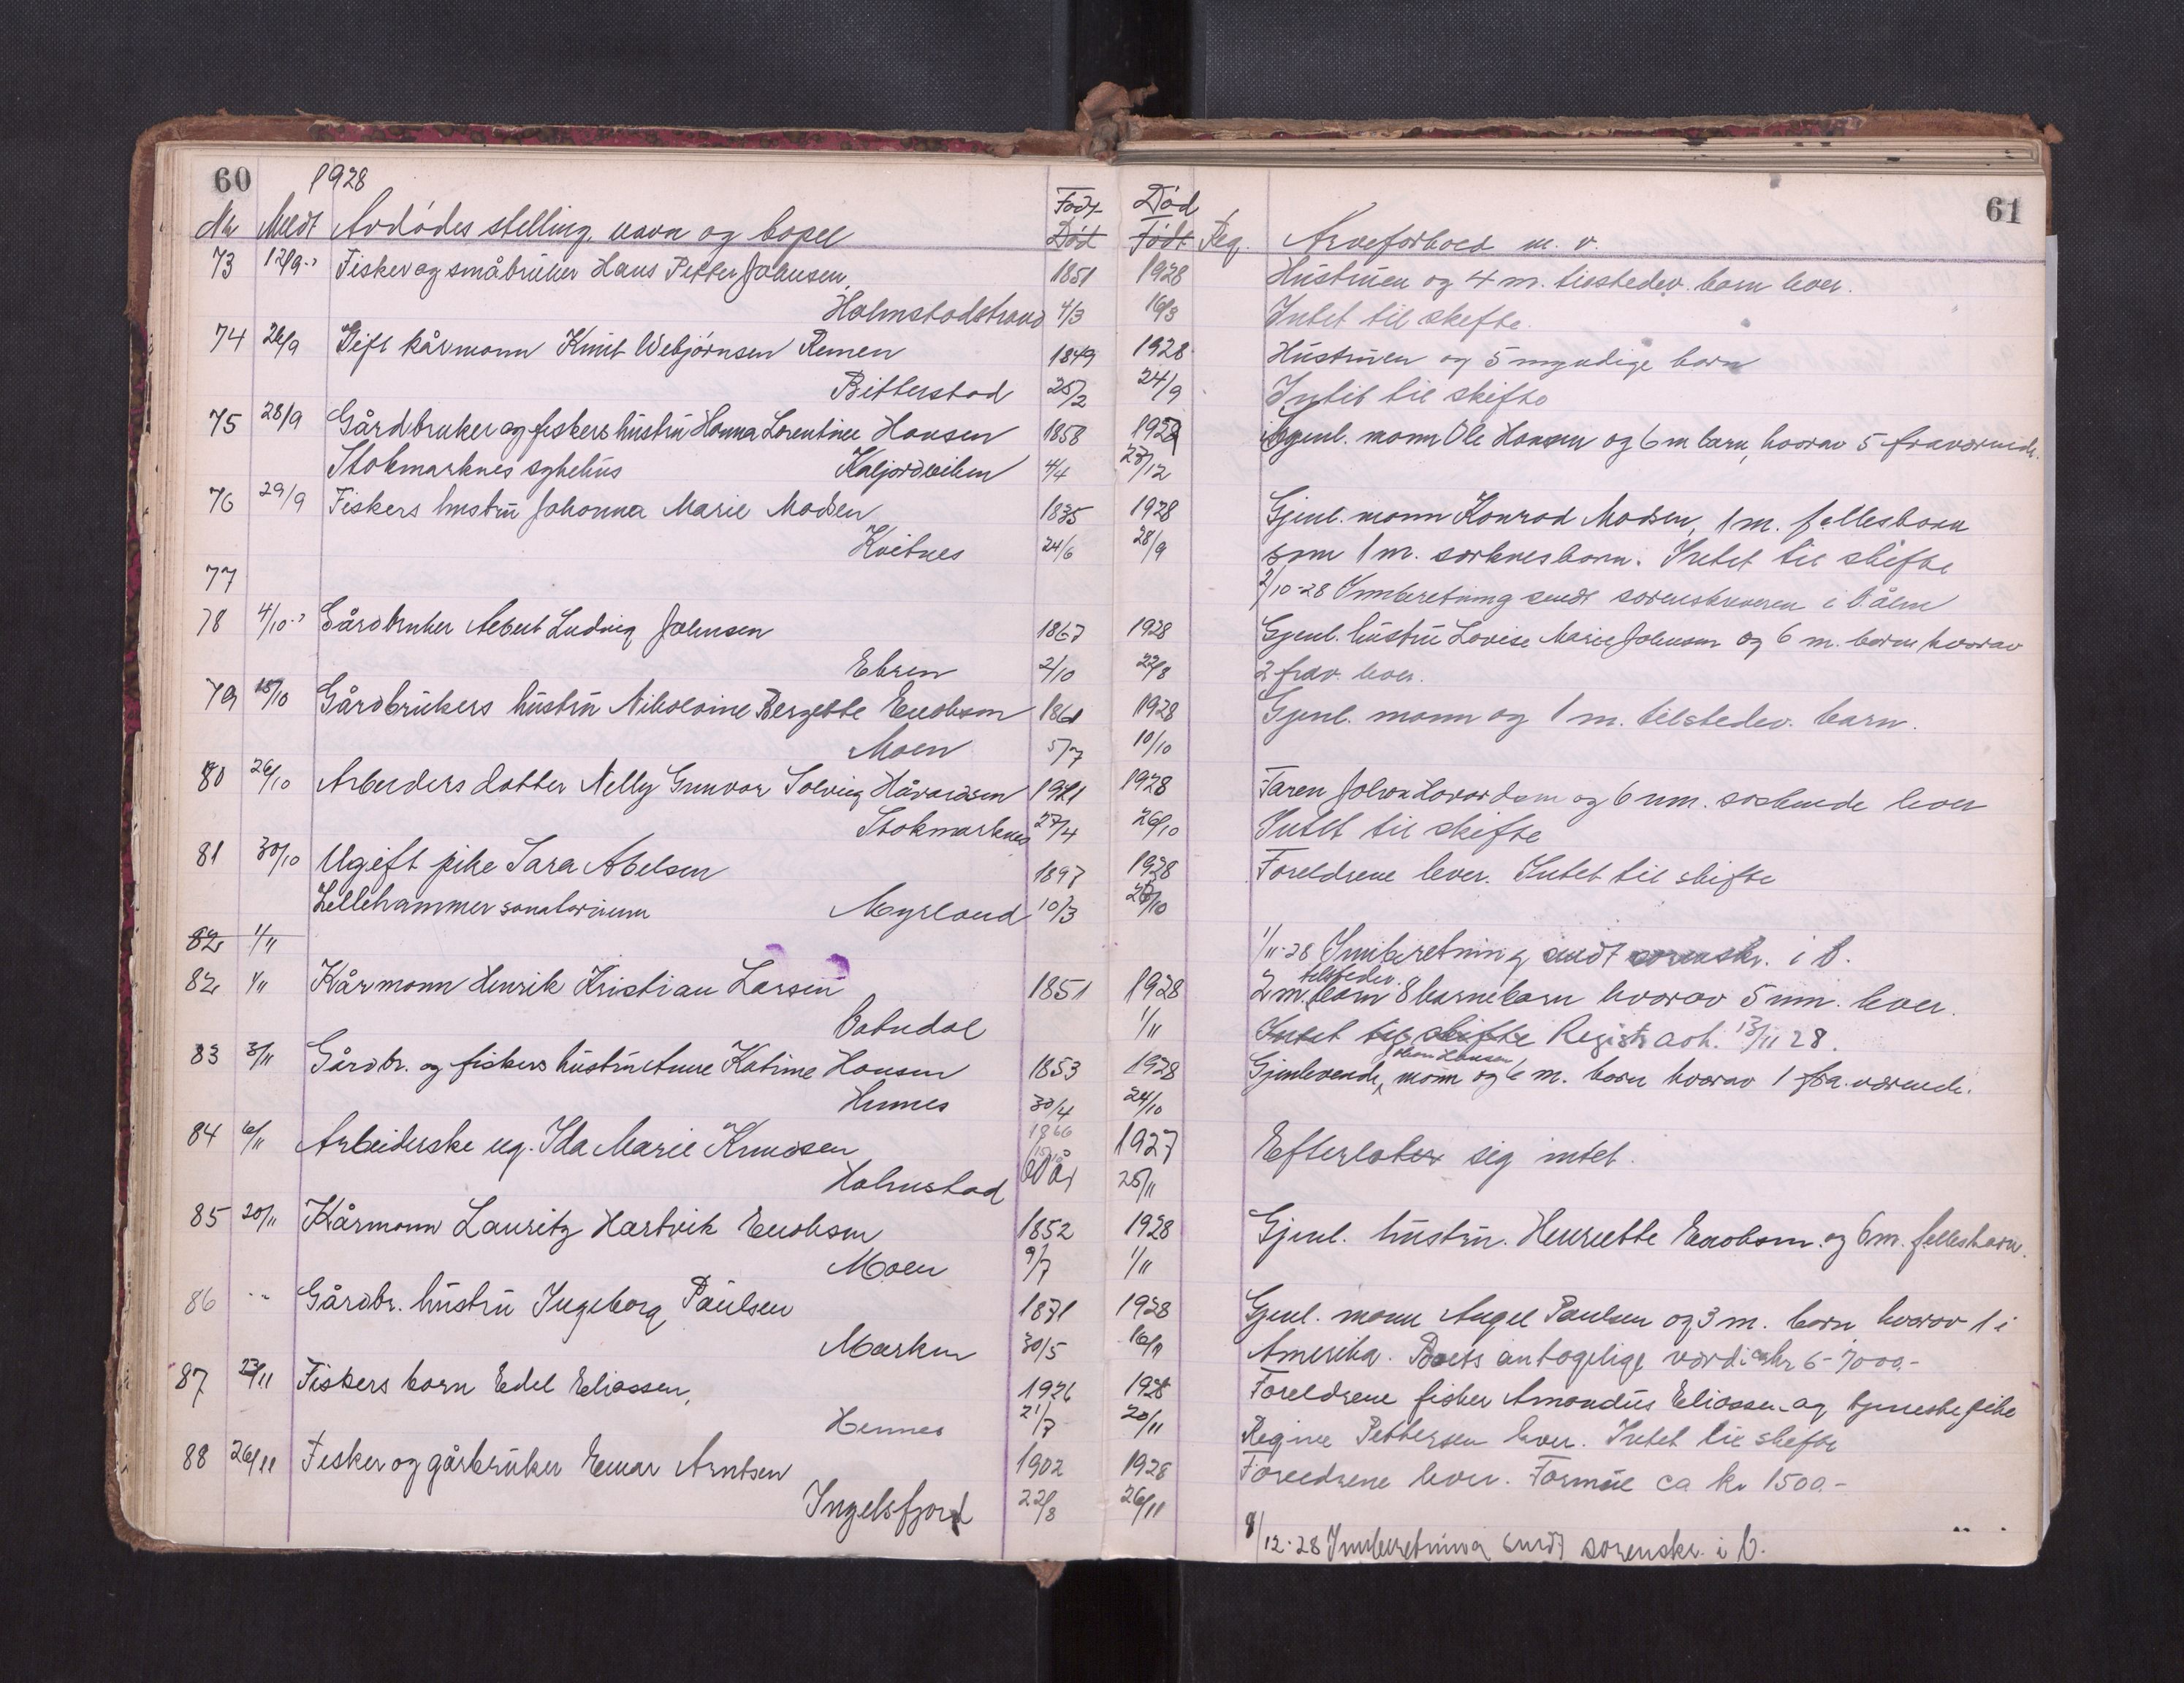 60 1928 61
Nr Meldt Avdødes stilling, navn og bopel Født Død Død Født Reg. Arveforhold m. v.
73 12/9 Fisker og småbruker Hans Petter Johnsen, 1851 1928 Hustruen og 4 m. tilstedev. barn lever.
Holmstadstrand 4/3 16/3 Intet til skifte.
74 26/9 Gift kårmann Knut Webjørnsen Remen 1849 1928 Hustruen og 5 myndige barn
Bitterstad 25/2 24/9 Intet til skifte
75 28/9 Gårdbruker og fiskers hustru Hanna Lorentine Hansen 1858 1928 Gjenl. mann Ole Hansen og 6 m barn, hvorav 5 fraværende.
Stokmarknes sykehus Kaljordeilen 4/4 27/12
76 29/9 Fiskers hustru Johanna Marie Madsen 1835 1928 Gjenl. mann Konrad Madsen, 1 m. fellesbarn
Kvitnes 24/6 28/9 som 1 m. særkullsbarn. Intet til skifte
77 2/10-28 Innberetning sendt sorenskriveren i Vålen
78 4/10 Gårdbruker Albert Ludvig Johnsen 1867 1928 Gjenl. hustru Lovise Marie Johnsen og 6 m. barn hvorav
Ebren 2/10 22/8 2 frav. lever.
79 15/10 Gårdbrukers hustru Nikoline Bergette Enoksen 1861 1928 Gjenl. mann og 1 m. tilstedev. barn.
Moen 5/7 10/10
80 26/10 Arbeiders datter Nelly Gunvor Solveig Håvardsen 1921 1928 Faren Johan Havardsen og 6 um. søskende lever
Stokmarknes 27/4 26/10 Intet til skifte
81 30/10 Ugift pike Sara Abelsen 1897 1928 Foreldrene lever. Intet til skifte
Lillehammer sanatorium Myrland 10/3 /10
82 1/11 1/11-28 Innberetning sendt sorenskr. i V.
82 1/11 Kårmann Henrik Kristian Larsen 1851 1928 2 m. tilstedev. barn 8 barnebarn hvorav 5 um. lever.
Vatndal 1/11 Intet til skifte Registr. avh. 13/11 28.
83 3/11 Gårdbr. og fiskers hustru Anne Katrine Hansen 1853 1928 Gjenlevende mann Hansen og 6 m. barn hvorav 1 fraværende.
Hennes 30/4 24/10
84 6/11 Arbeiderske ug. Ida Marie Knudsen 1866 1927 Efterlater sig intet.
Holmstad 25/11
85 20/11 Kårmann Lauritz Hartvik Enoksen 1852 1928 Gjenl. hustru Henriette Enoksen og 6 m. fellesbarn.
Moen 9/7 1/11
86 -"- Gårdbr. hustru Ingeborg Paulsen 1871 1928 Gjenl. mann Angel Paulsen og 3 m. barn hvorav 1 i
Marken 30/5 16/9 Amerika. Boets antagelige verdi ca kr 6-7000.-
87 23/11 Fiskers barn Edel Eliassen, 1926 1928 Foreldrene fisker Amandus Eliassen og tjenestepike
Hennes 21/7 20/11 Regine Pettersen lever. Intet til skifte
88 26/11 Fisker og gårbruker Einar Arntsen 1902 1928 Foreldrene lever. Formue ca kr 1500.-
Ingelsfjord 22/8 26/11
8/12-28 Innberetning sendt sorenskr. i V.